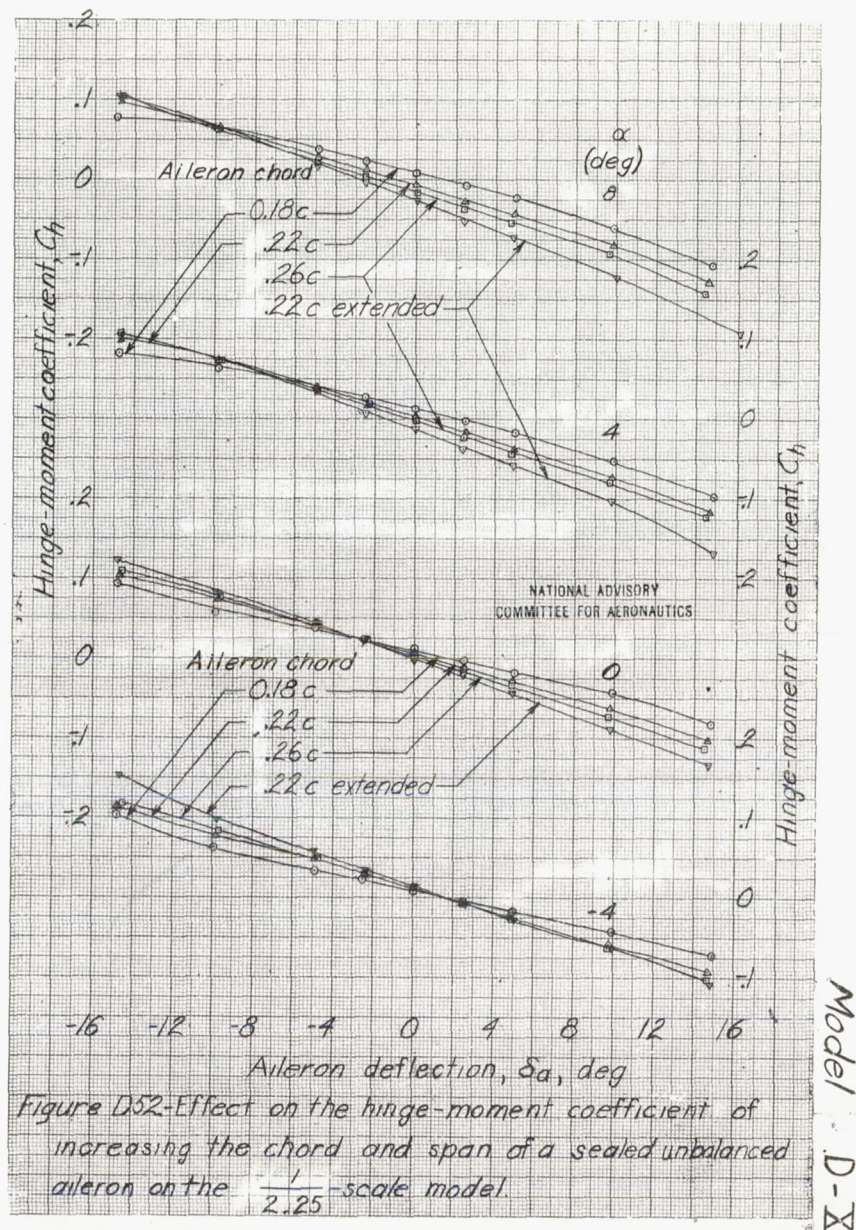 .2
.1
0
-.1
-.2
.2
.1
0
-.1
-.2
Hinge-moment coefficient, Ch
α
(deg)
8
Aileron chord
0.18c
.22c
.26c
.22c extended
.2
.1
0
-.1
-.2
4
Hinge-moment coefficient, Ch
NATIONAL ADVISORY
COMMITTEE FOR AERONAUTICS
0
Aileron chord
0.18c
.22c
.26c
.22c extended
.2
.1
0
-.1
-4
-16 -12 -8 -4 0 4 8 12 16
Aileron deflection, δa, deg
Figure D52-Effect on the hinge-moment coefficient of
increasing the chord and span of a sealed unbalanced
aileron on the 1/2.25-scale model.
Model D-X